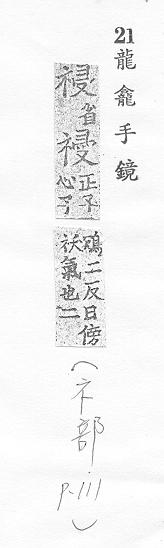 21 龍龕手鏡
祲省祲正子
心子
鴆二反日傍
祅氣也二
(ネ部 p.111)